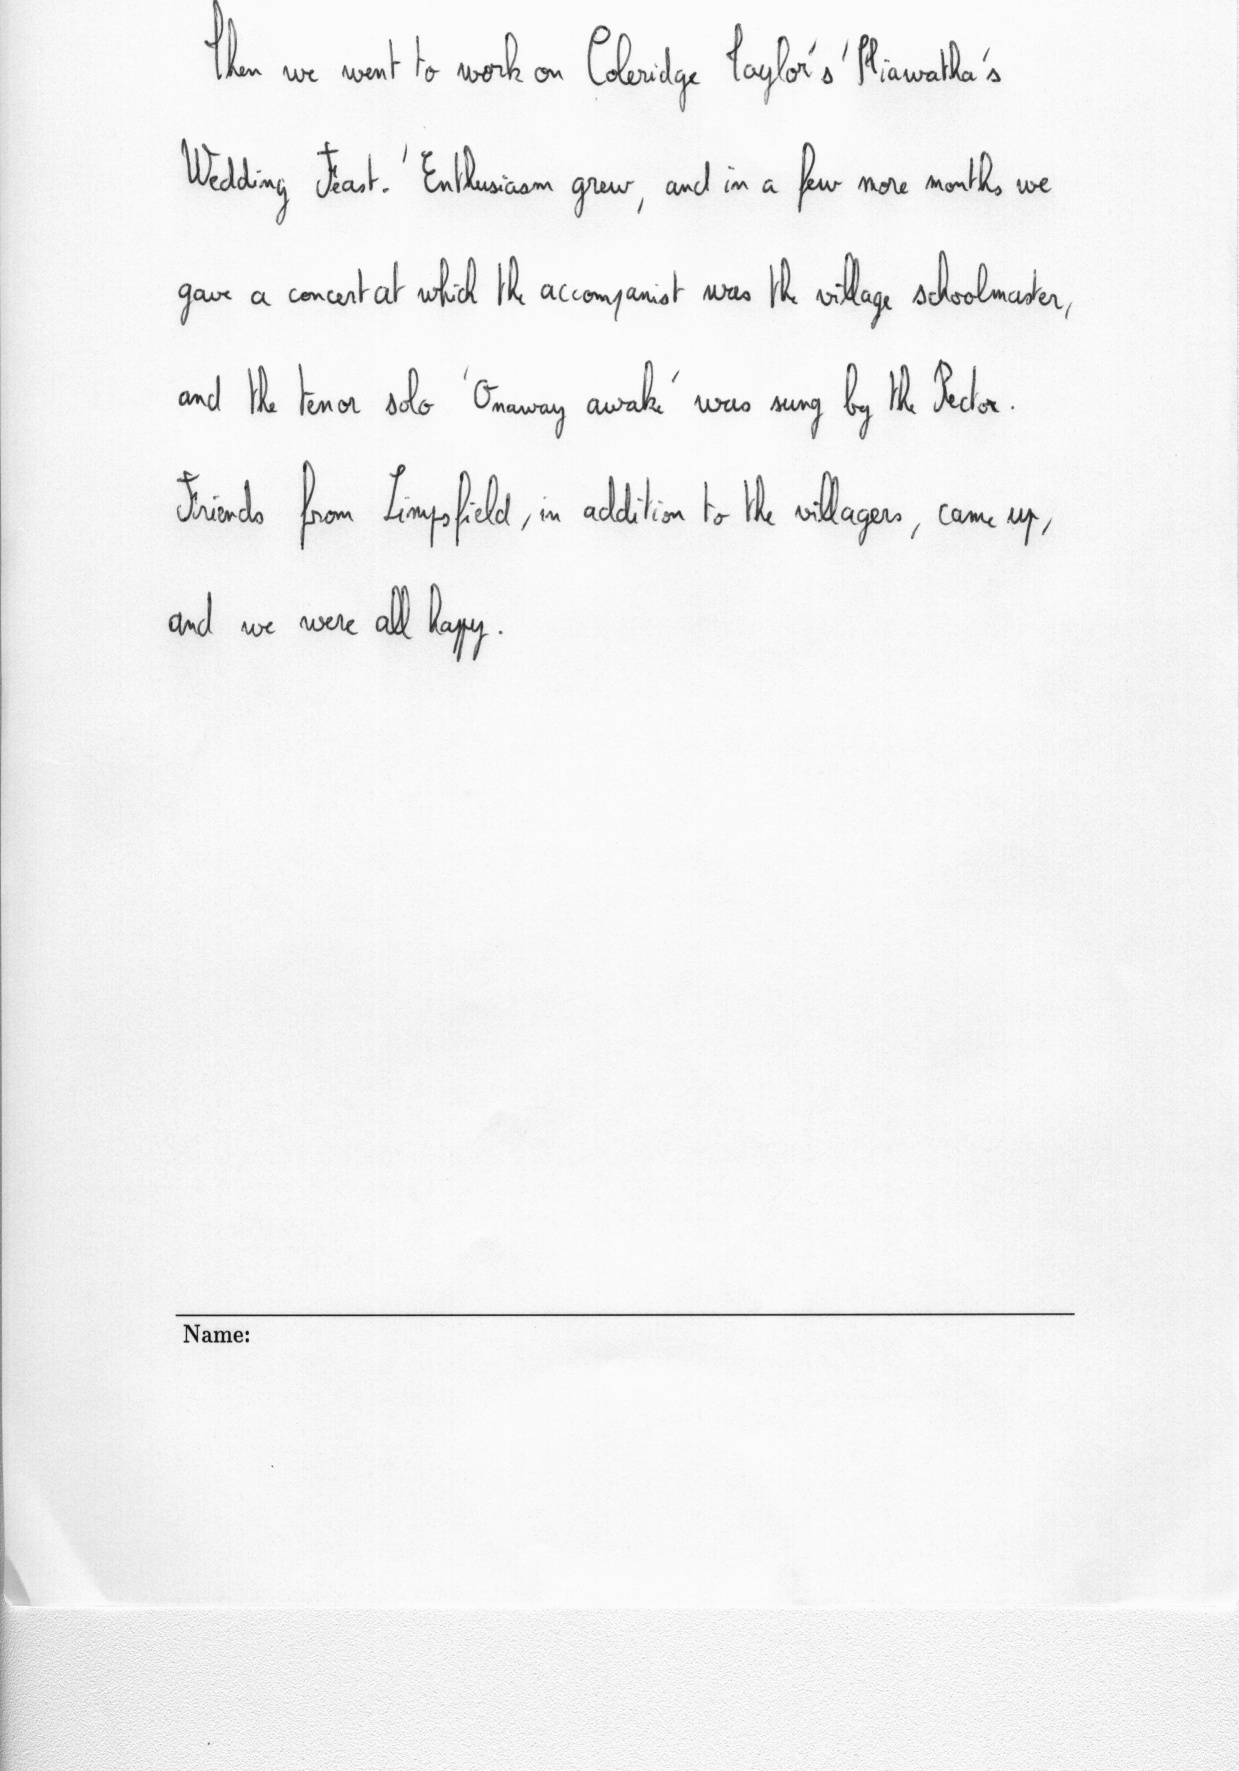 Then we went to work on Coleridge Taylor's 'Hiawatha's
Wedding Feast.' Enthusiasm grew, and in a few more months we
gave a concert at which the accompanist was the village schoolmaster,
and the tenor solo 'Onaway awake' was sung by the Rector.
Friends from Limpsfield, in addition to the villagers, came up,
and we were all happy.
Name: